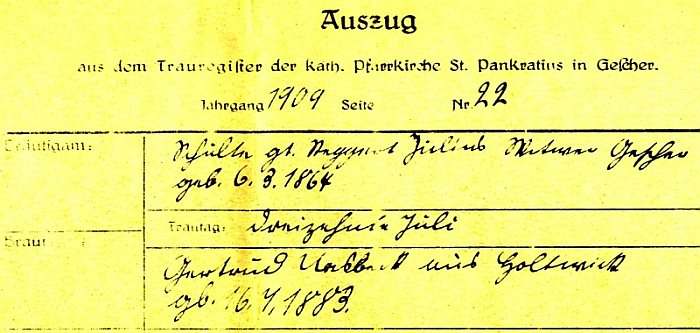 Auszug
aus dem Trauregister der kath. Pfarrkirche St. Pankratius in Gescher.
Jahrgang 1909 Seite Nr. 22
Bräutigam:
Schulte gt. Julius Witwer Gescher
geb. 6. 3. 1864
Trautag: dreizehnte Juli
Braut :
Gertrud aus Holtwick
gb. 16.7.1883.